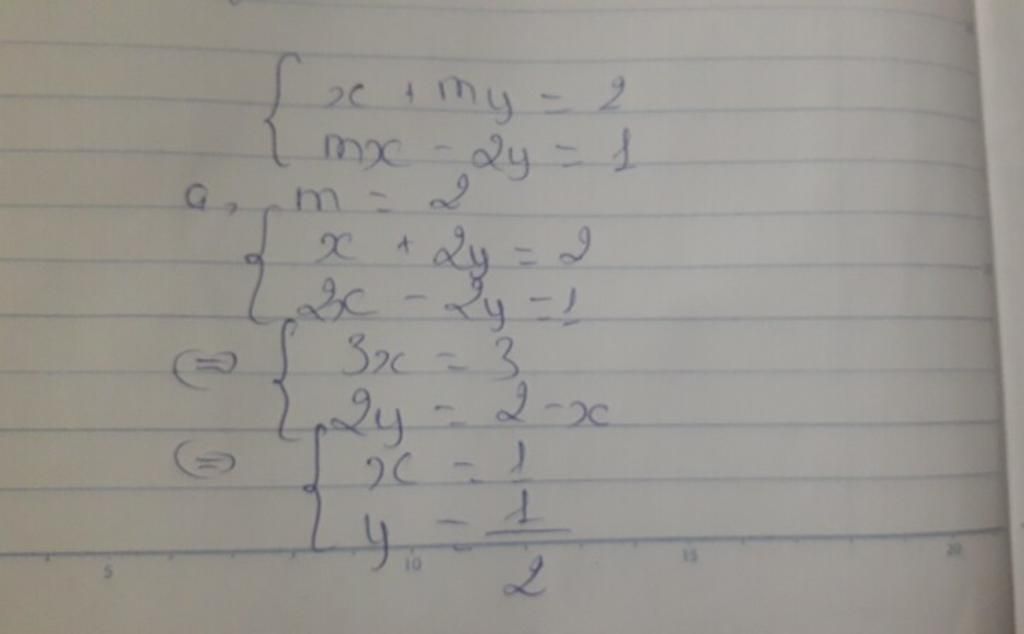 { x + my = 2
mx - 2y = 1
a, m = 2
{ x + 2y = 2
2x - 2y = 1
(=) { 3x = 3
2y = 2 - x
(=) { x = 1
y = 1/2
5 10 15 20